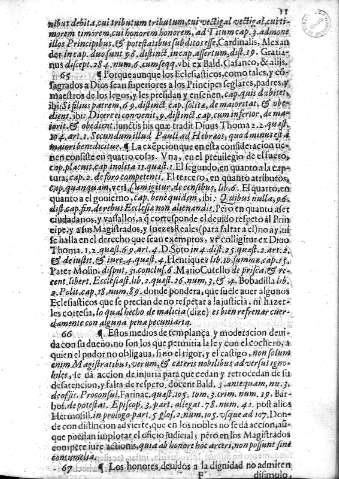 11
nibus debita, cui tributum tributum, cui vectigal vectigal, cui ti-
morem timorem, cui honorem honorem, ad Titum cap. 3. admone
illos Principibus, & potestatibus subditos esse, Cardinalis, Alexan
der in cap. duo sunt 96. distinct. in cap. assertum, dist. 19. Gratia-
nus, ubi ex Bald. Casaneo, & alijs.
65 ¶ Porque aunque los Eclesiasticos, como tales, y cõ-
sagrados a Dios sean superiores a los Principes seglares, padres, y
maestros de los legos, y les presidan y enseñen, cap. quis dubitet,
ibi: Si filius patrem, 69. distinct. cap. solitæ, de maioritat. & obe-
dient. ibi: Dicere conuenit, 9. distinct. cap. cum inferior, de ma-
iorit. & obedient. iunctis his quæ tradit Diuus Thoma 2. 2. quæst.
104. art. 1. Secundum illud Pauli ad Hebræos, quod minus est à
maiori benedicitur. ¶ La exẽpcion que en esta consideracion tie-
nen consiste en quatro cosas. Vna, en el preuilegio del fuero,
cap. placuit, cap. inolita 11. quæst. 1. El segundo, en quanto a la cap-
tura, cap. 2. de foro competenti. El tercero, en quanto atributos,
cap. quanquam, vers. Sumigitur, de censibus, lib. 6. El quarto, en
quanto a el gouierno, cap. bene quidem, ibi: Quibus nulla, 96.
dist. cap. fin. de rebus Ecclesiæ non alienandis. Pero en quanto a ser
ciudadanos, y vassallos, a q̃ corresponde el deuido respeto al Prin
cipe, y a sus Magistrados, y Iuezes Reales (para faltar a el) no ay, ni
se halla en el derecho que sean exemptos, vt colligitur ex Diuo
Thoma, 1. 2. quæst. 69. art. 4. D. Soto in 4. dist. 25. quæst. 2. art. 2.
& de iustit. & iure, 4. quæst. 4. Henriquez lib. 10. sumæ, cap. 15.
Pater Molin. disput. 31. conclus. 6. Mario Cutello de prisca, & re-
cent. libert. Ecclesiast. lib. 2. quæst. 26. num. 3. & 4. Bobadilla lib.
2. Polit. cap. 18. num. 89. donde pondera, que suele auer algunos
Eclesiasticos que se precian de no respetar a la justicia, ni hazer-
les cortesia, lo qual hecho de malicia (dize) es bien refrenar cuer-
damente con alguna pena pecuniaria.
66 ¶ Estos medios de templança, y moderacion deui-
da con su dueño, no son los que permitia la ley con el cochero, a
quien el pudor no obligaua, sino el rigor, y el castigo, non solum
enim Magistratibus, verum, & cæteris nobilibus aduersus igno-
biles, se dà accion de injuria para que cedan y retrocedan de su
desatencion, y falta de respeto, docent Bald. 3. antequam, nu. 3.
de offic. Proconsul. Farinac. quæst. 105. tom. 3. crim. num. 19. Bar-
bos. de potestat. Episcop. 3. part. allegat. 78. num. 41. post alios
Hermosill. in prolog. part. 5. glos. 2. num. 105. vsque ad 107. Don-
de con distincion aduierte, que en los nobles no se dà accion, aũ-
que puedan implorar el oficio judicial; pero en los Magistrados
compete iure actionis, quia ab honore hoc arceri, non possunt sine
contumelia.
67 ¶ Los honores deuidos a la dignidad no admiten
F
disimulo,